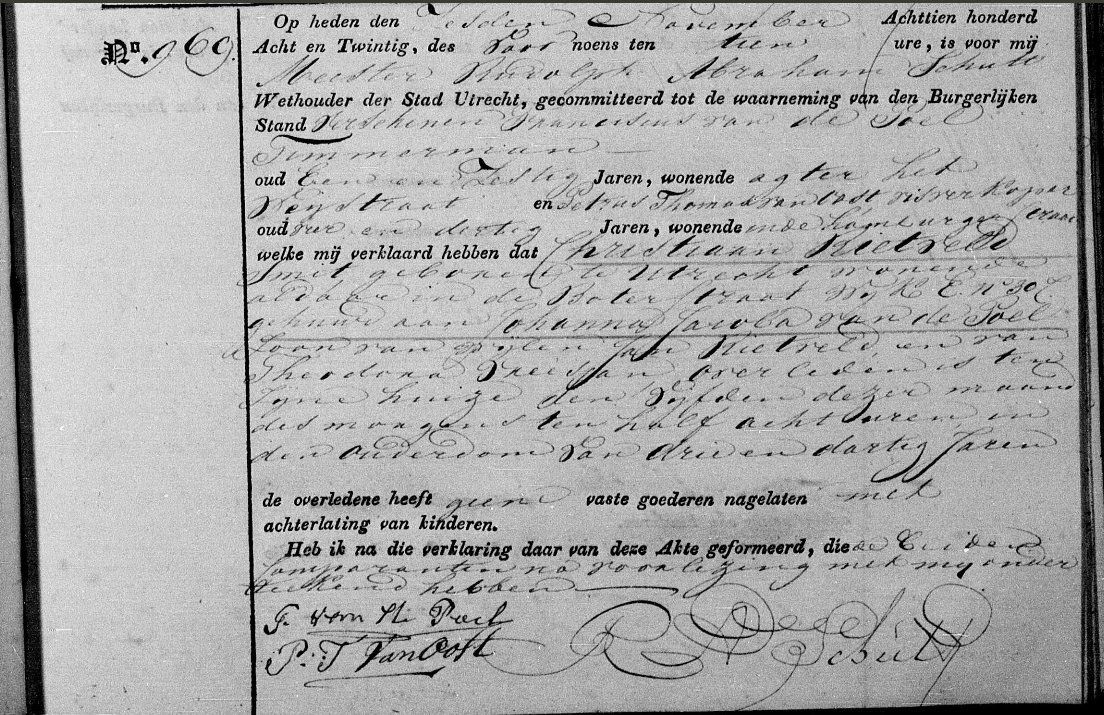 Op heden den Zesden November Achttien honderd
No. 969. Acht en Twintig, des Voor noens ten tien ure, is voor mij
Meester Rudolph Abraham Schutt
Wethouder der Stad Utrecht, gecommitteerd tot de waarneming van den Burgerlijken
Stand Verschenen Franciscus van de Poel
Timmerman
oud Een en Zestig Jaren, wonende agter het
Weystraat en Petrus Thomas van Oost visverkoper
oud vier en dertig Jaren, wonende inde Hamburger straat
welke mij verklaard hebben dat Christiaan Rietveld
Smit geboren te Utrecht wonende
aldaar in de Boterstraat Wijk E. no
gehuwd aan Johanna Jacoba van de Poel
Zoon van wijlen Jan Rietveld, en van
Theodora overleden is ten
zyne huize den Vijfden dezer maand
des morgens ten half acht uren in
den ouderdom van drie en dartig Jaren
de overledene heeft geen vaste goederen nagelaten met
achterlating van kinderen.
Heb ik na die verklaring daar van deze Akte geformeerd, die de beiden
Comparanten na voorlezing met my onder
teekend hebben
F. van de Poel
P. T. Van Oost
R A Schutt